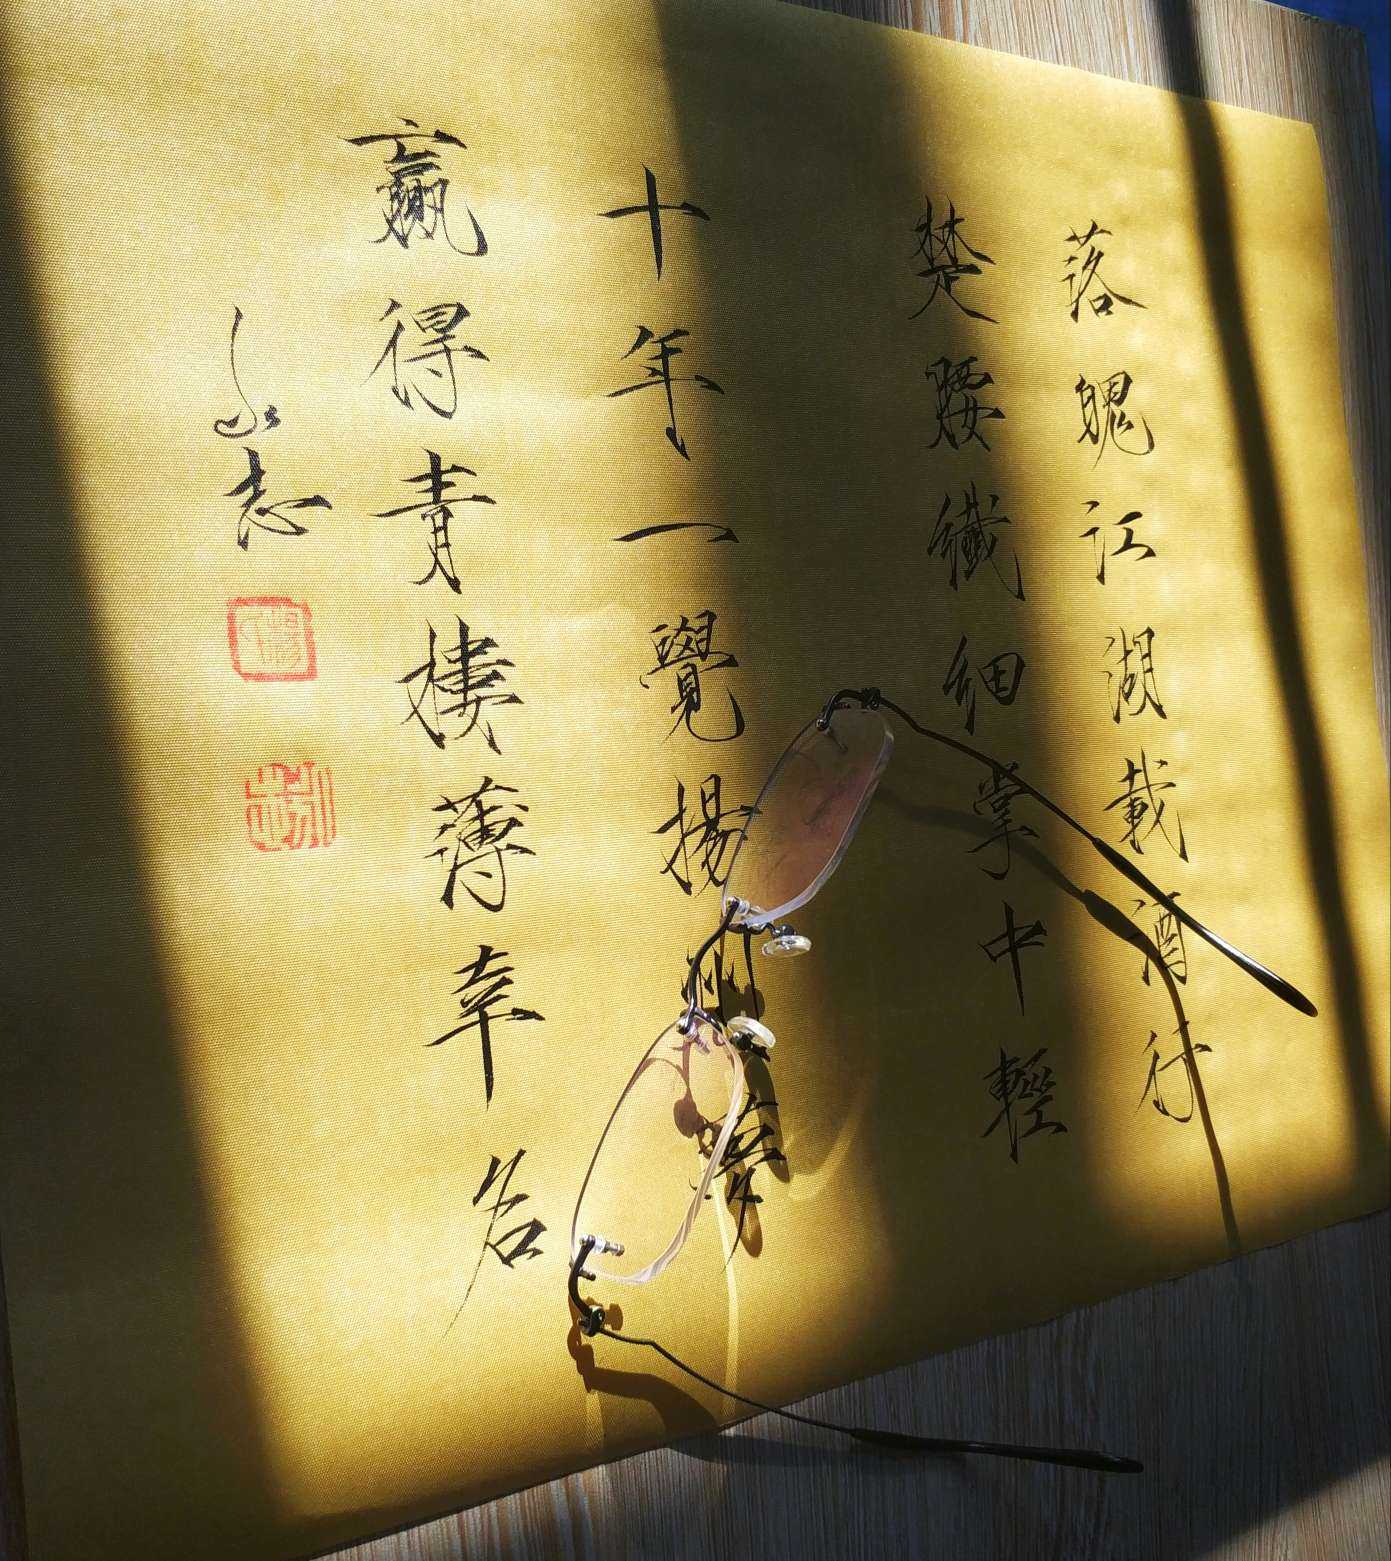 落魄江湖載酒行
楚腰纖細掌中輕
十年一覺揚州夢
贏得青樓薄幸名
志